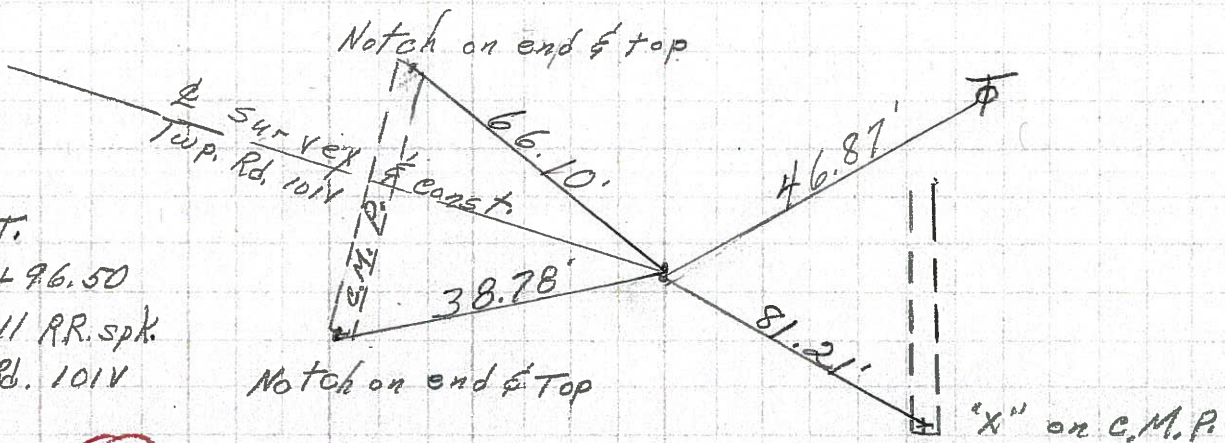 Notch on end & top
℄ Survey & Const.
Twp. Rd. 101V
C.M.P.
66.10'
46.87'
38.78'
81.21'
T.
96.50
RR. spk.
Rd. 101V
Notch on end & Top
"X" on C.M.P.